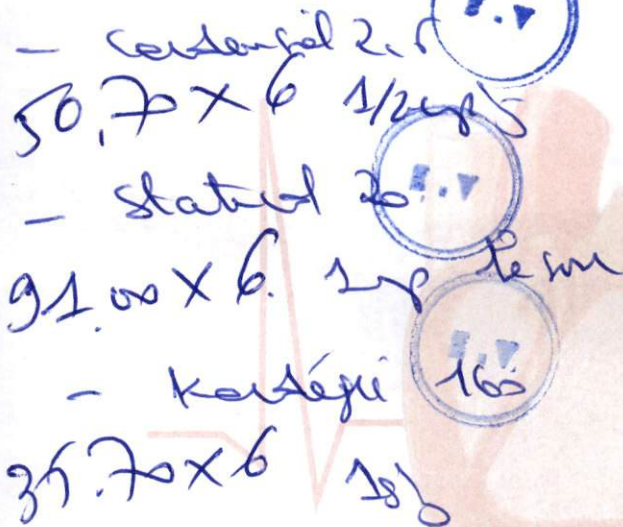 - Cardensiel 2.5
50,70 X 6 1/2 cp/j
P.V
- Statinol 20
P.V
91.00 X 6. 1 cp le soir
P.V
- Kardégic 160
35.70 X 6 1s/j